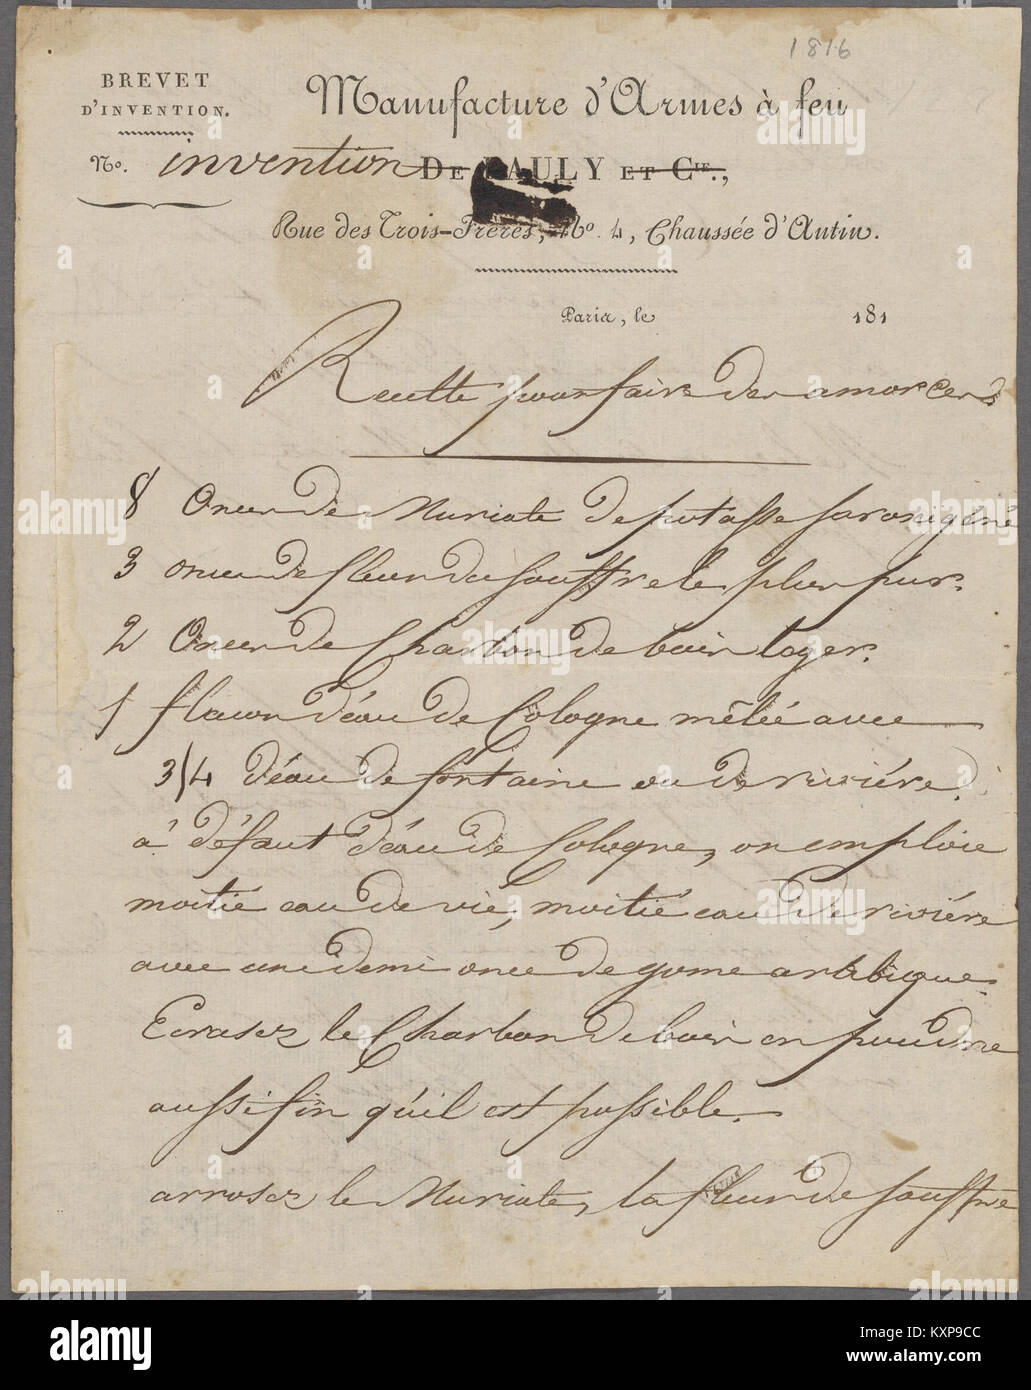 1816
BREVET
D'INVENTION.
Manufacture d'Armes à feu
No. invention DE PAULY ET CIE.,
Rue des Trois-Frères, No. 4, Chaussée d'Antin.
Paris, le 181
Recette pour faire des amorces
8 Onces de Muriate de potasse suroxigéné
3 onces de fleur du souffre le plus pur.
2 Onces de Charbon de bois leger.
1 flacon d'éau de Cologne mêlée avec
3/4 d'éau de fontaine ou de riviére.
à défaut d'éau de Cologne, on emploie
moitié eau de vié, moitié eau de riviére
avec une demi once de gome arabique.
Ecrasez le Charbon de bois en poudre
aussi fin qu'il est possible.
arrosez le Muriate, la fleur de souffre
alamy
Image ID: KXP9CC
www.alamy.com